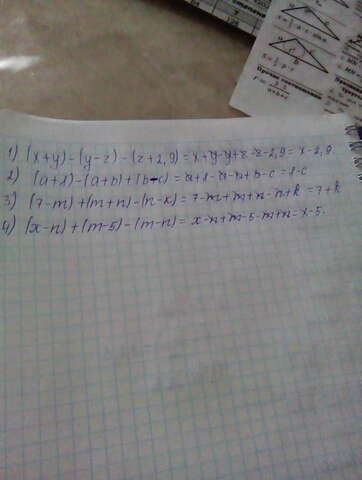 1) (x+y)-(y-z)-(z+2,9)=x+y-y+z-z-2,9=x-2,9.
2) (a+8)-(a+b)+(b-c)=a+8-a-b+b-c=8-c
3) (7-m)+(m+n)-(n-k)=7-m+m+n-n+k=7+k
4) (x-n)+(m-5)-(m-n)=x-n+m-5-m+n=x-5.